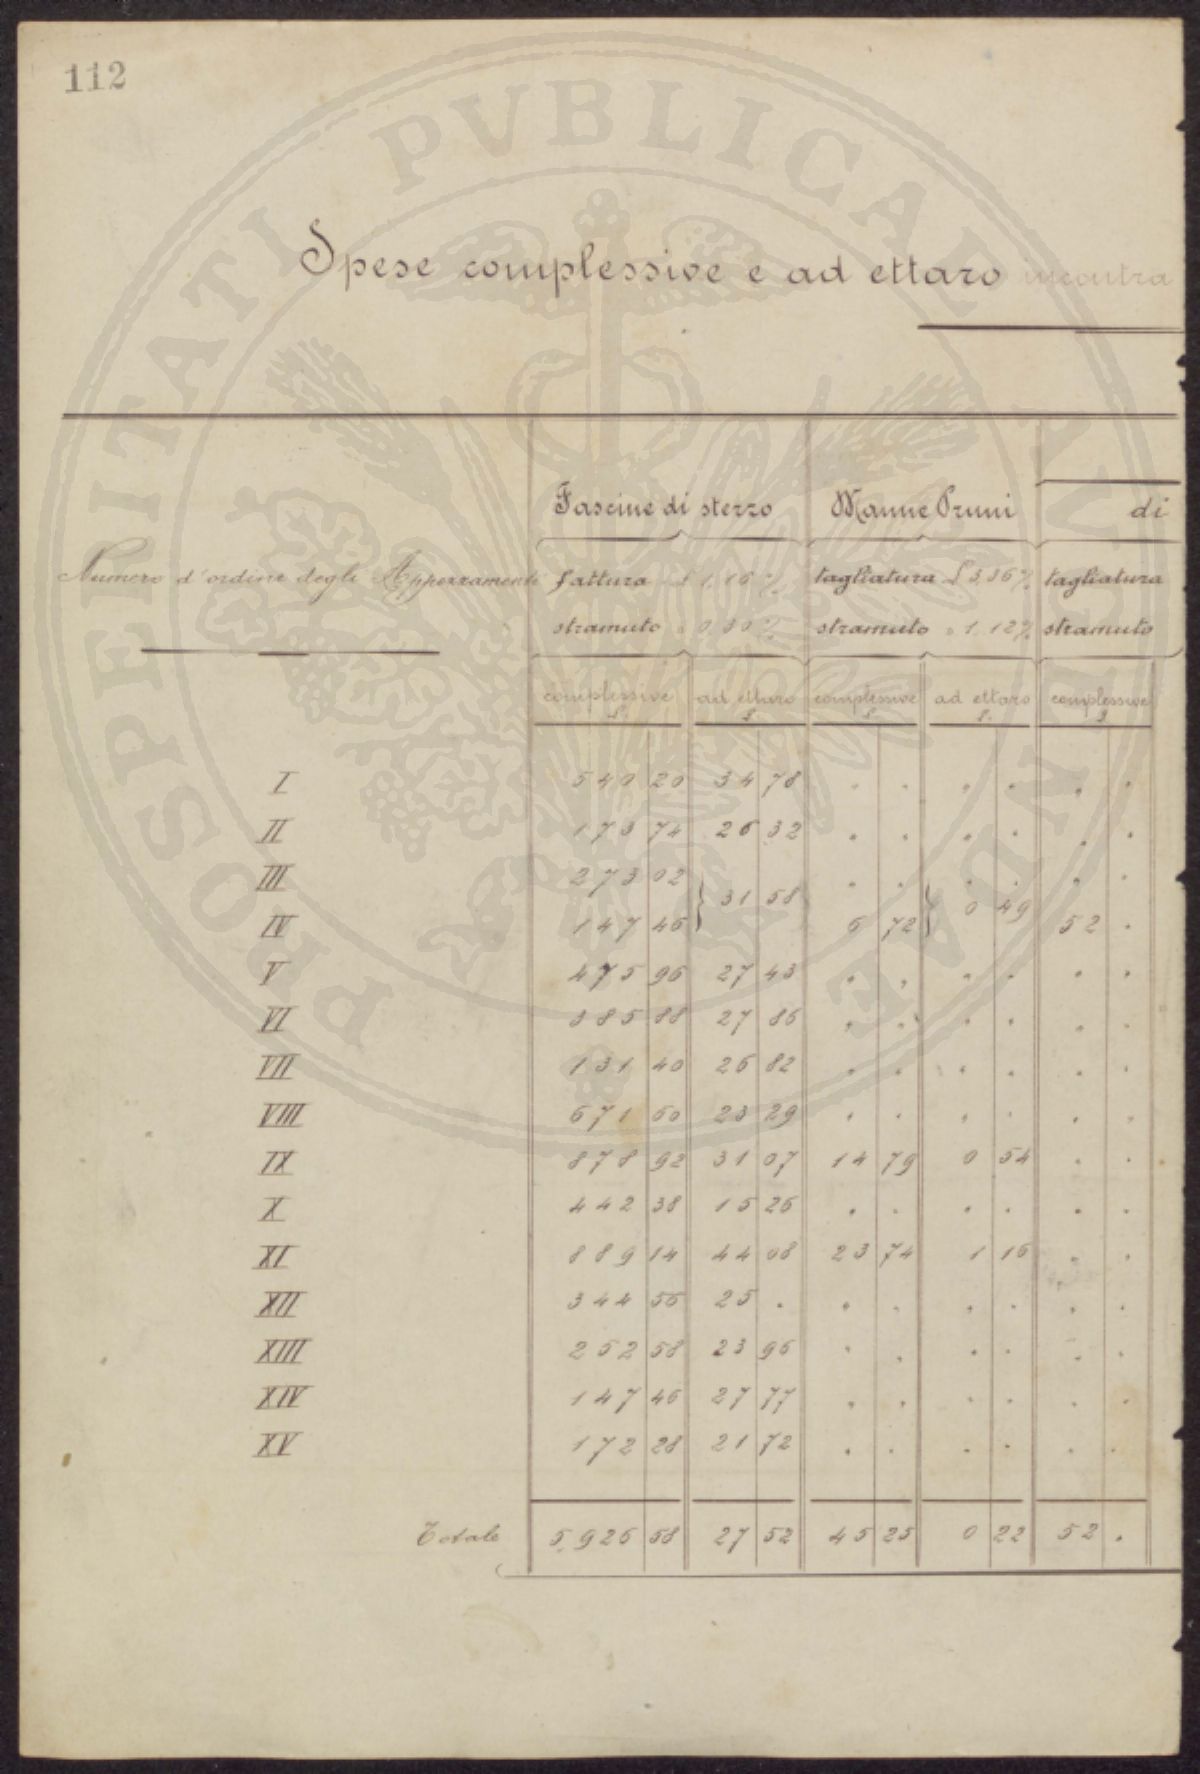 112
PROSPERITATI PVBLICAE AVGENDAE
Spese complessive e ad ettaro incontra
Fascine di sterzo Manne Pruni di
Numero d'ordine degli Appezzamenti fattura £ 1,16 % tagliatura £ 3,36 % tagliatura
stramuto " 0,30 % stramuto " 1,12 % stramuto
complessive ad ettaro complessive ad ettaro complessive
£ £ £ £ £
I 540 20 34 78 " " " " " "
II 173 74 26 32 " " " " " "
III 273 02 " " " " " "
31 58 0 49
IV 147 46 6 72 52 "
V 475 96 27 43 " " " " " "
VI 385 88 27 86 " " " " " "
VII 131 40 26 82 " " " " " "
VIII 671 60 23 29 " " " " " "
IX 878 92 31 07 14 79 0 54 " "
X 442 38 15 26 " " " " " "
XI 889 14 44 08 23 74 1 16 " "
XII 344 56 25 " " " " " " "
XIII 252 58 23 96 " " " " " "
XIV 147 46 27 77 " " " " " "
XV 172 28 21 72 " " " " " "
Totale 5,926 58 27 52 45 25 0 22 52 "